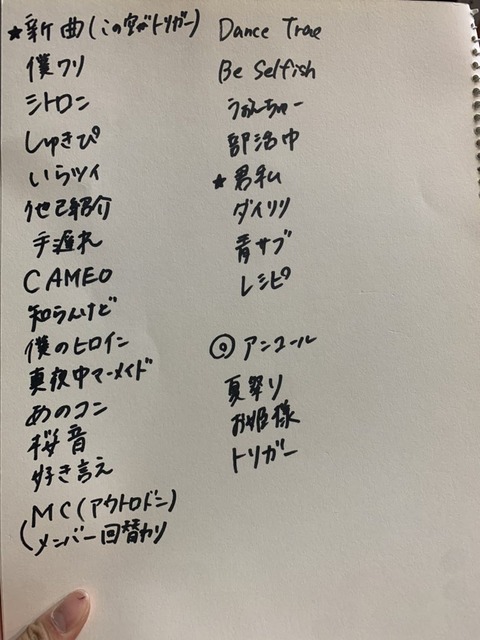 ★新曲(この空がトリガー)
僕フリ
シトロン
しゅきぴ
いらツイ
他己紹介
手遅れ
CAMEO
知らんけど
僕のヒロイン
真夜中マーメイド
あのコン
桜音
好き言え
MC(アウトロドン)
(メンバー回替わり
Dance Trae
Be Selfish
うぉんちゅー
部活中
★君私
ダイリリ
青サブ
レシピ
◎アンコール
夏祭り
お姫様
トリガー